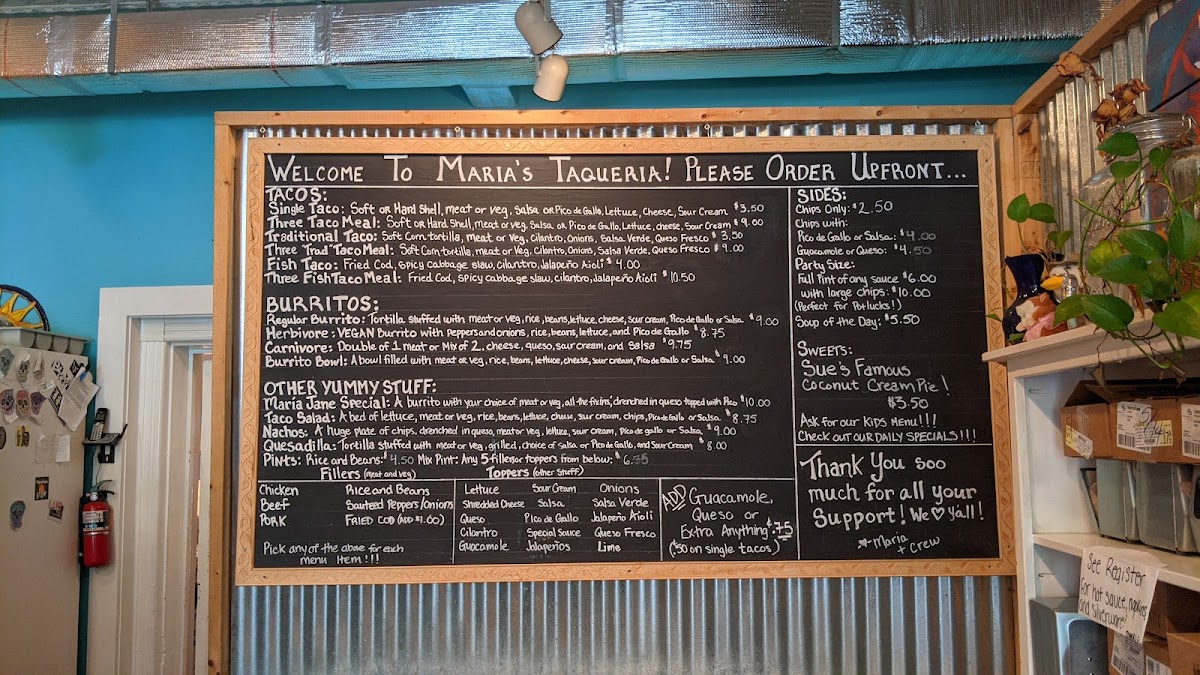 WELCOME TO MARIA'S TAQUERIA! PLEASE ORDER UPFRONT...
TACOS:
Single Taco: Soft or Hard Shell, meat or veg, Salsa or Pico de Gallo, Lettuce, Cheese, Sour Cream $3.50
Three Taco Meal: Soft or Hard Shell, meat or veg, Salsa or Pico de Gallo, Lettuce, cheese, Sour Cream $9.00
Traditional Taco: Soft Corn tortilla, meat or veg, Cilantro, Onions, Salsa Verde, Queso Fresco $3.50
Three "Trad" Taco Meal: Soft Corn tortilla, Meat or Veg, Cilantro, Onions, Salsa Verde, Queso Fresco $9.00
Fish Taco: Fried Cod, Spicy Cabbage slaw, cilantro, Jalapeño Aioli $4.00
Three Fish Taco Meal: Fried Cod, Spicy cabbage slaw, cilantro, Jalapeño Aioli $10.50
BURRITOS:
Regular Burrito: Tortilla stuffed with meat or veg, rice, beans, lettuce, cheese, sour cream, Pico de Gallo or Salsa $9.00
Herbivore: VEGAN Burrito with peppers and onions, rice, beans, lettuce, and Pico de Gallo $8.75
Carnivore: Double of 1 meat or Mix of 2, cheese, queso, sour cream, and Salsa $9.75
Burrito Bowl: A bowl filled with meat or veg, rice, beans, lettuce, cheese, sour cream, Pico de Gallo or Salsa $9.00
OTHER YUMMY STUFF:
Maria Jane Special: A burrito with your choice of meat or veg, all the fixins, drenched in queso topped with Pico $10.00
Taco Salad: A bed of lettuce, meat or veg, rice, beans, lettuce, cheese, sour cream, chips, Pico de Gallo or Salsa $8.75
Nachos: A huge plate of chips, drenched in queso, meat or veg, lettuce, sour cream, Pico de gallo or Salsa $9.00
Quesadilla: Tortilla stuffed with meat or veg, grilled, choice of Salsa or Pico de Gallo, and Sour Cream $8.00
Pints: Rice and Beans: $4.50 Mix Pint: Any 5 fillers or toppers from below: $6.75
Fillers (meat and veg)
Toppers (other stuff)
Chicken Rice and Beans
Beef Sauteed Peppers/Onions
Pork Fried Cod (ADD $1.00)
Pick any of the above for each
menu item!!!
Lettuce Sour Cream Onions
Shredded Cheese Salsa Salsa Verde
Queso Pico de Gallo Jalapeño Aioli
Cilantro Special Sauce Queso Fresco
Guacamole Jalapeños Lime
ADD Guacamole,
Queso or
Extra Anything $.75
($.50 on single tacos)
SIDES:
Chips Only: $2.50
Chips with:
Pico de Gallo or Salsa: $4.00
Guacamole or Queso: $4.50
Party Size:
Full Pint of any sauce $6.00
with large chips: $10.00
(Perfect for Potlucks!)
Soup of the Day: $5.50
SWEETS:
Sue's Famous
Coconut Cream Pie!
$3.50
Ask for our Kids Menu!!!
Check out our DAILY SPECIALS!!!
Thank You soo
much for all your
Support! We ♡ y'all!
Maria
+ Crew
See Register
for hot sauce, napkins,
and silverware